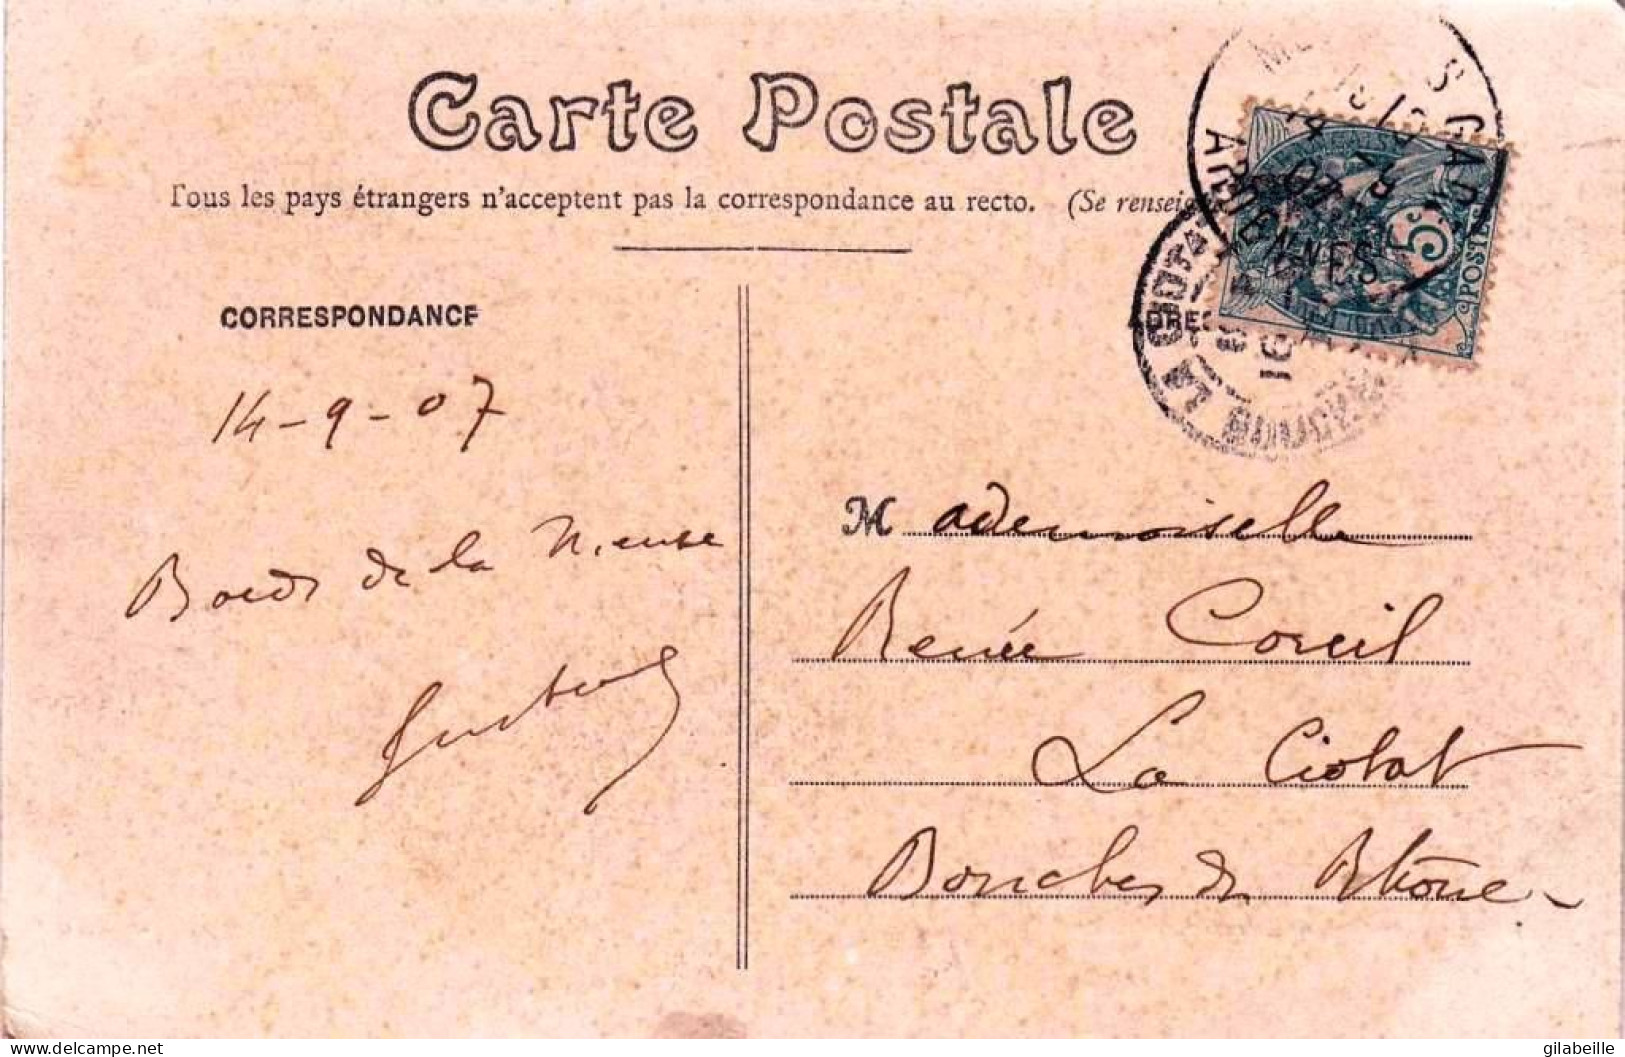 Carte Postale
Tous les pays étrangers n'acceptent pas la correspondance au recto. (Se renseig
CORRESPONDANCE
14-9-07
Bords de la Meuse
ADRES
5c
POSTES
LA CIOTAT
16
Mademoiselle
Renée Coreil
La Ciotat
Bouches du Rhône
delcampe.net
gilabeille